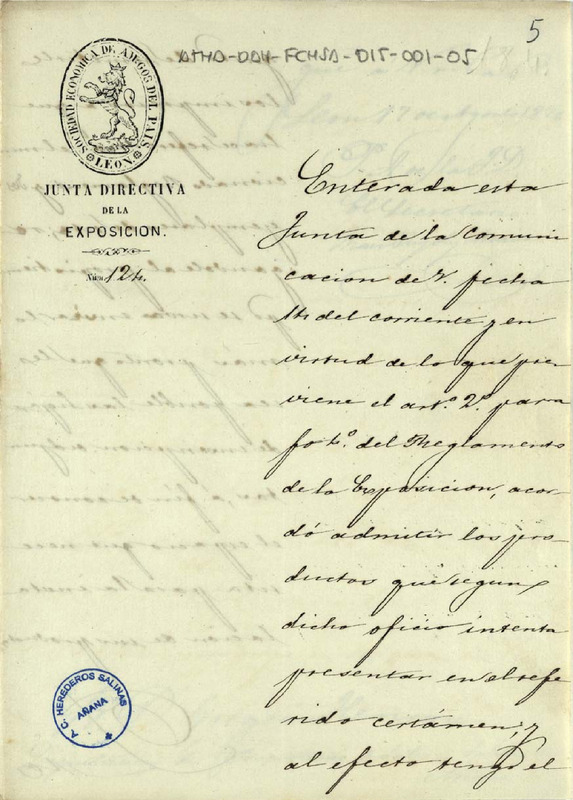 5
ATHA-DAH-FCHSA-015-001-05
SOCIEDAD ECONOMICA DE AMIGOS DEL PAIS.
LEON.
JUNTA DIRECTIVA
DE LA
EXPOSICION.
Núm. 124.
Enterada esta
Junta de la comuni
cacion de V. fecha
14 del corriente y en
virtud de lo que pre-
viene el artº. 2º. para
fo 4º. del Reglamento
de la Exposicion, acor-
dó admitir los pro-
ductos que segun
dicho oficio intenta
presentar en el refe
rido certámen; y
al efecto tengo el
A. C. HEREDEROS SALINAS
AÑANA